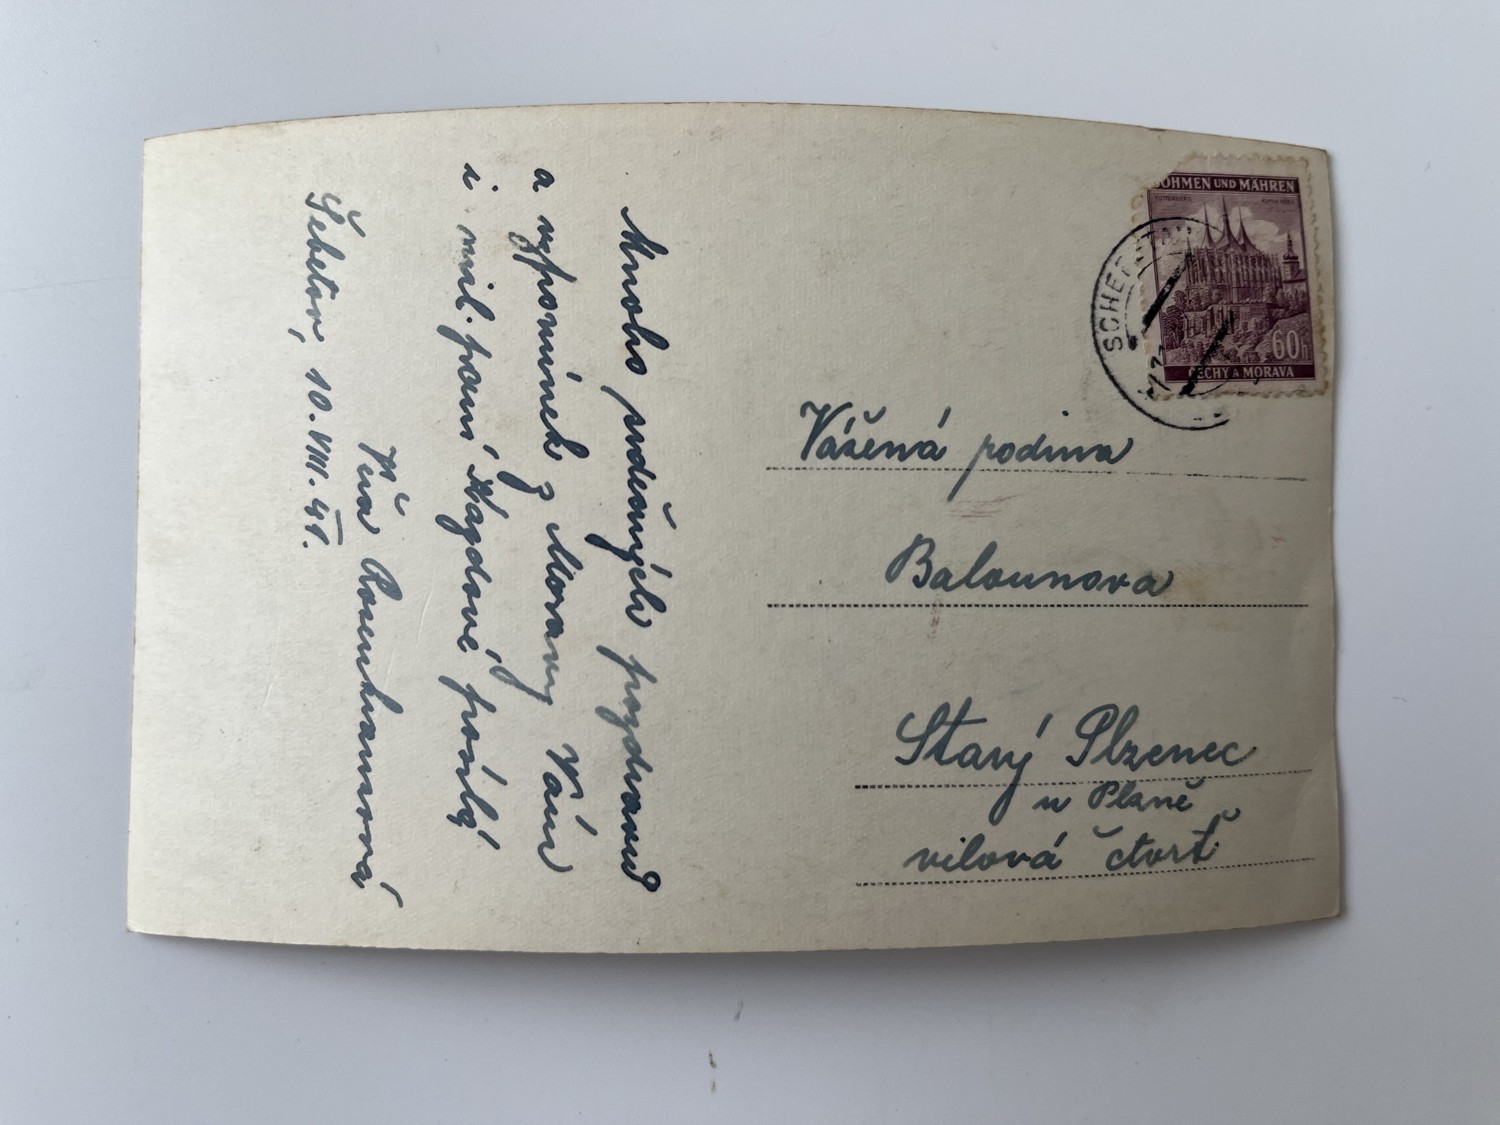 Mnoho srdečných pozdravů
a vzpomínek z Moravy Vám
i mil. paní Hágdové, posílá
Věra Rosenkranzová
Šebetov, 10. VIII. 41.
BÖHMEN UND MÄHREN
60h
ČECHY A MORAVA
Vážená rodina
Balounova
Starý Plzenec
u Plzně
vilová čtvrť